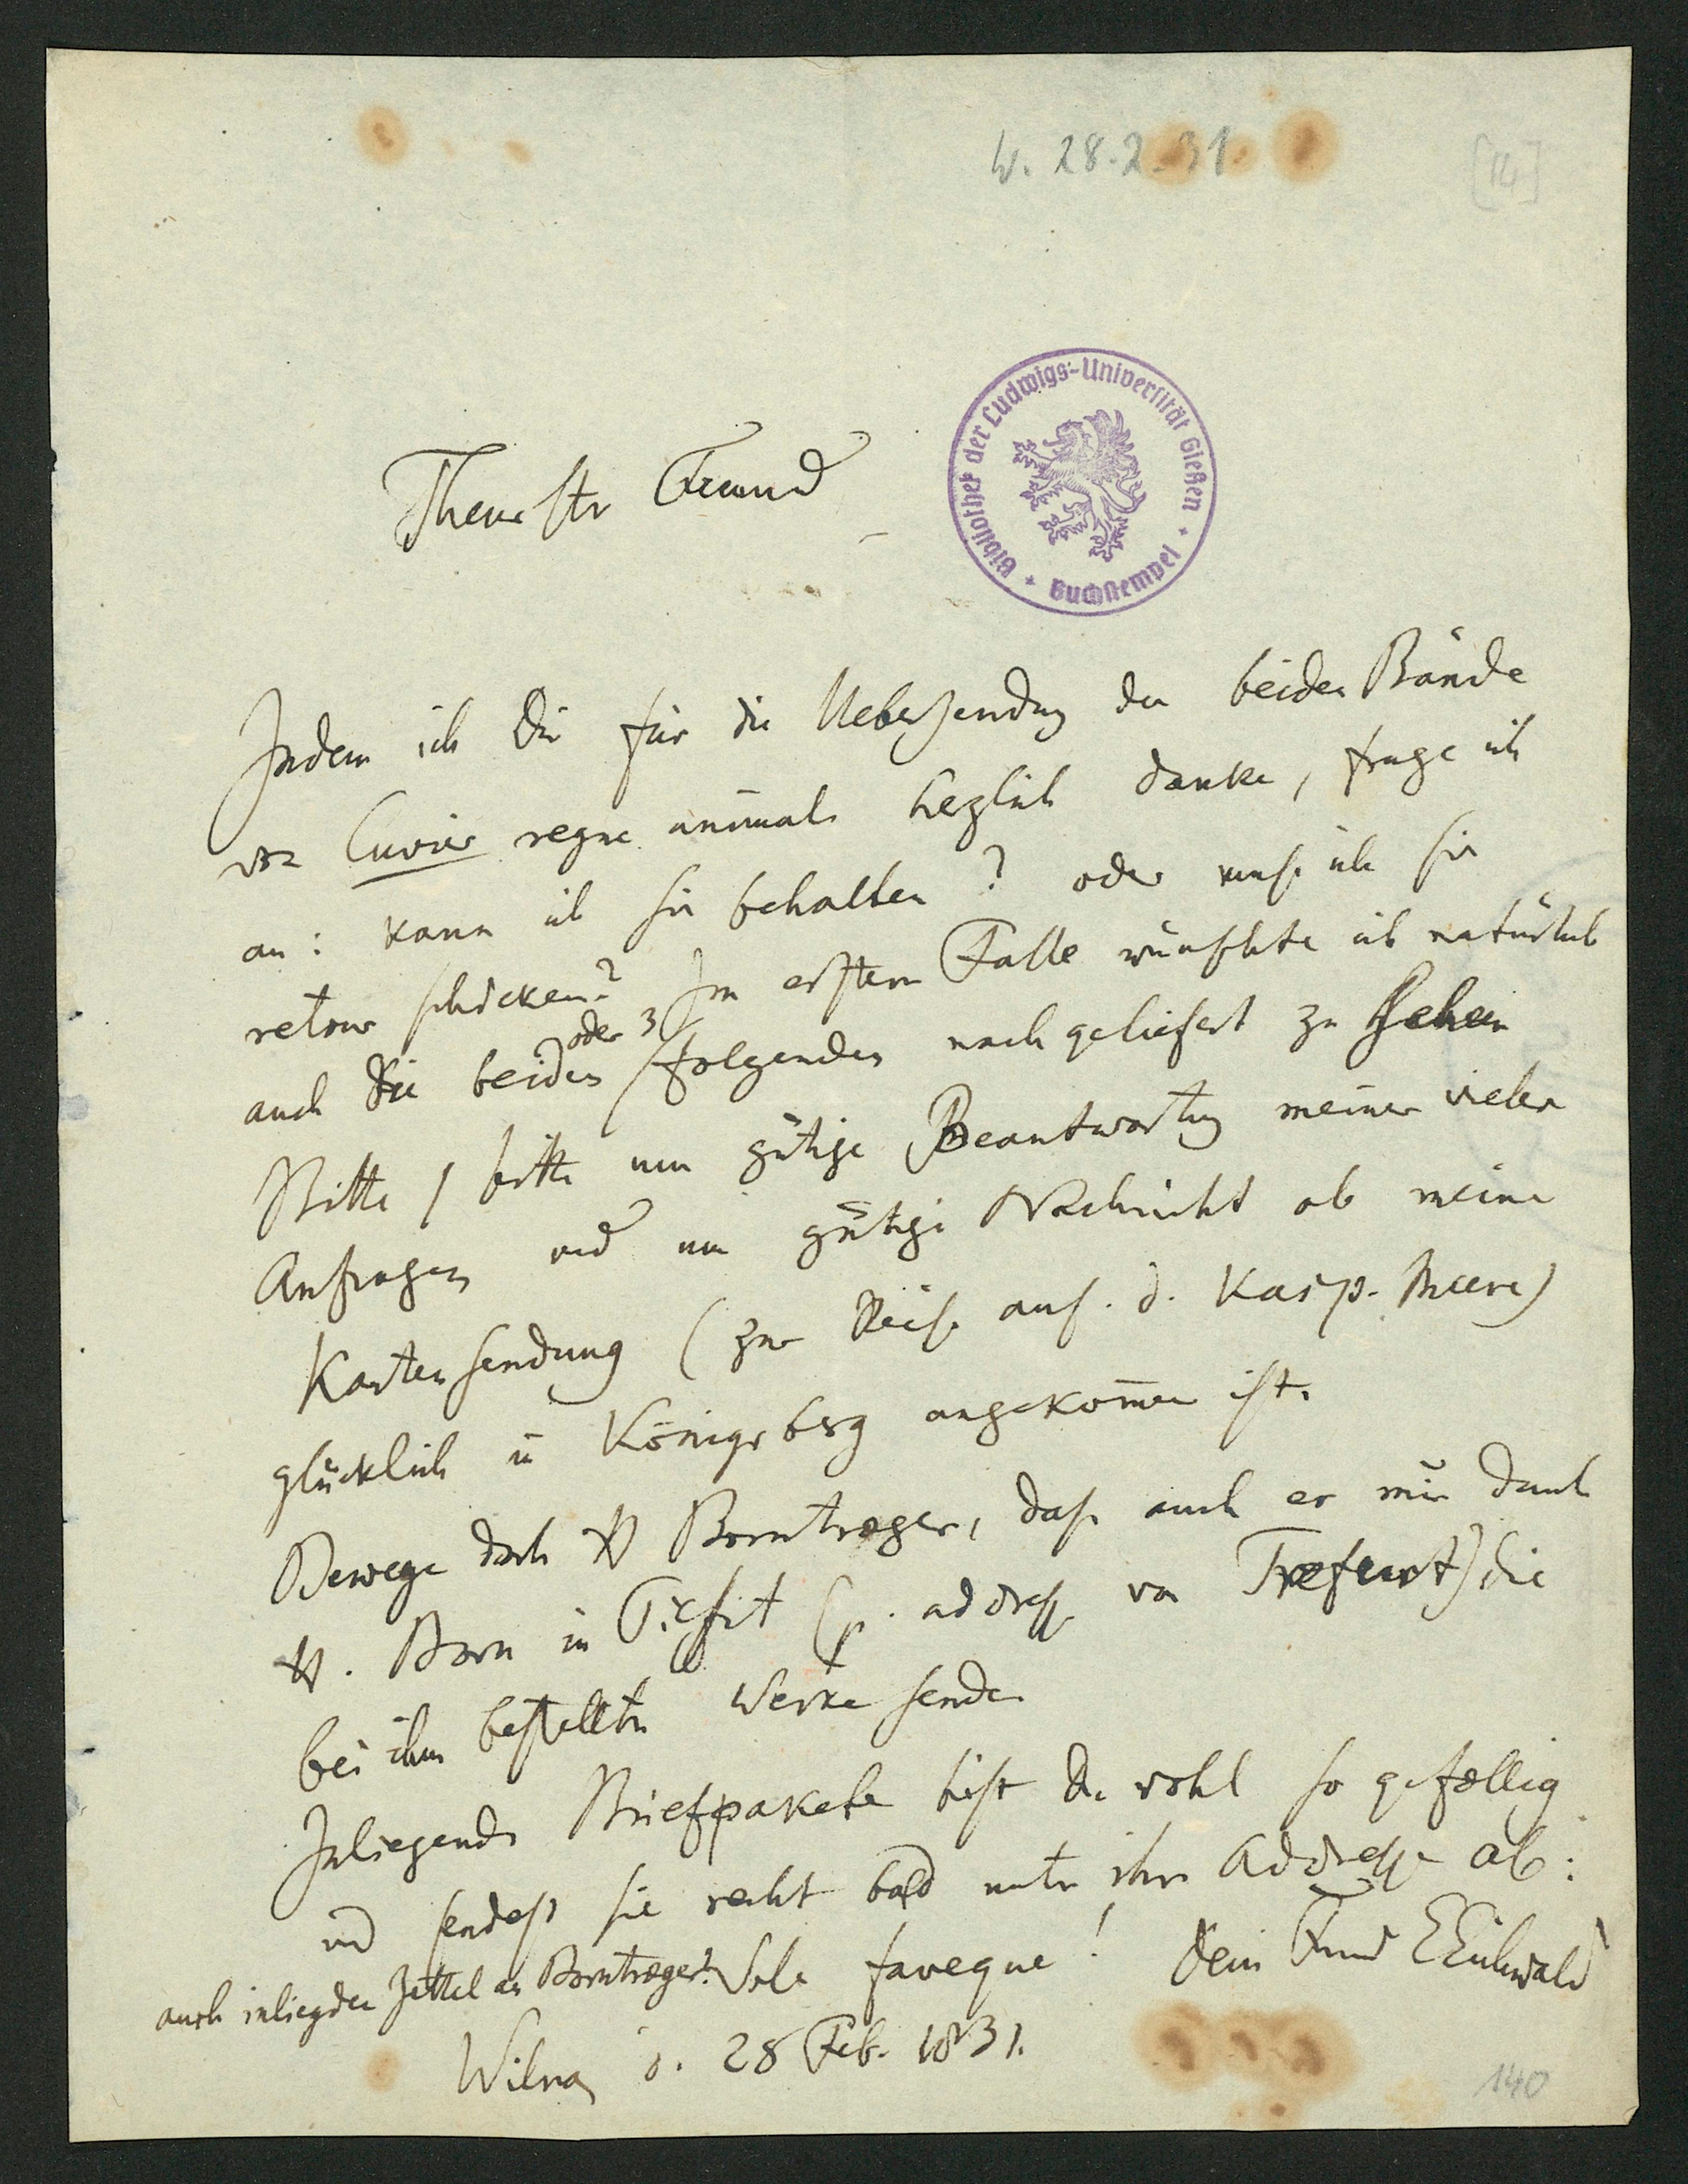 W. 28.2.31
[14]
Bibliothek der Ludwigs-Universität Gießen
Buchstempel
Theuerster Freund
Indem ich Dir für die Uebersendung der beiden Bände
von Cuvier regne animale herzlich danke, frage ich
an: kann ich sie behalten? oder muss ich sie
retour schicken? Im erstern Falle wünschte ich natürlich
auch die beiden oder 3 folgenden nach geliefert zu sehen
Bitte, bitte um gütige Beantwortung meiner vielen
Anfragen und um gütige Nachricht ob meine
Kartensendung (zur Reise auf. d. Kasp. Meere)
glücklich in Königsberg angekom̄en ist.
Bewege doch H Borntraeger, dass auch er mir durch
H. Born in Tilsit (p. adresse von Trefurt) die
bei ihm bestellten Werke sende
Inliegende Briefpakete bist Du wohl so gefællig
und sendest sie recht bald unter ihrer Addresse ab:
auch inliegenden Zettel an Borntraeger! Vale faveque! Dein Freund EEichwald
Wilna d. 28 Feb. 1831.
140